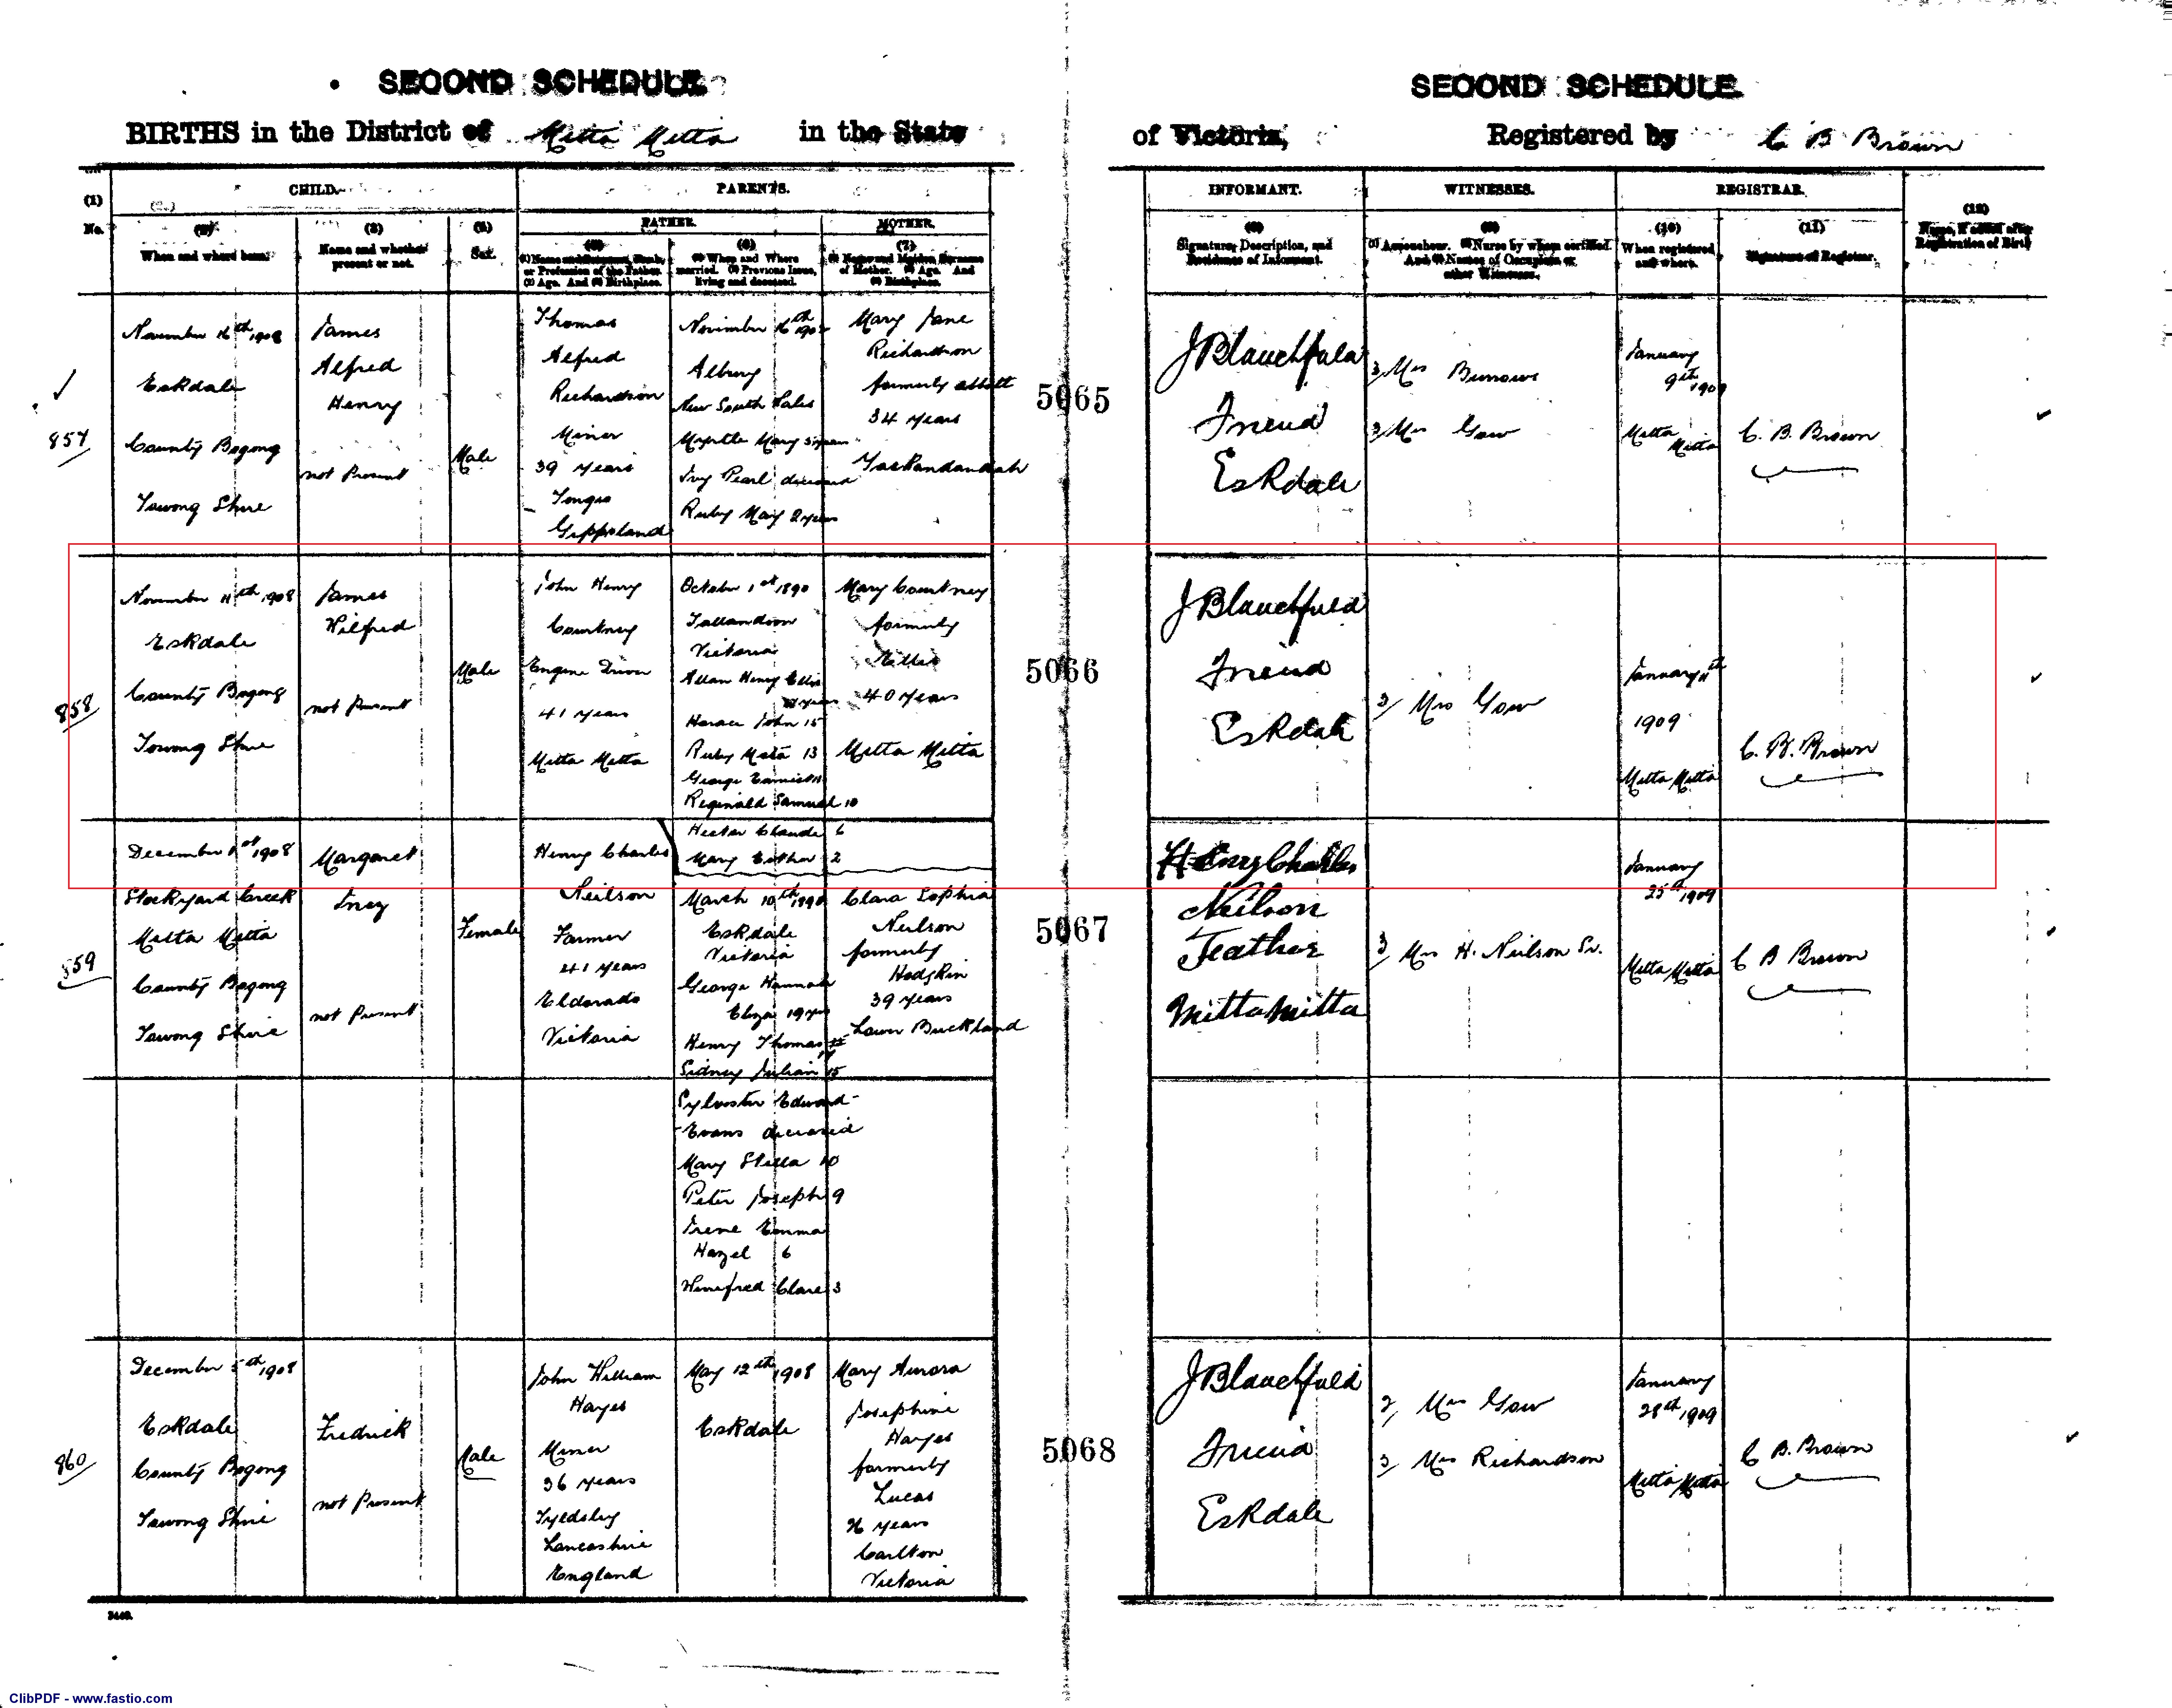 SECOND SCHEDULE
SECOND SCHEDULE
BIRTHS in the District of Mitta Mitta in the State
of Victoria, Registered by C B Brown
(1)
No.
CHILD.
PARENTS.
FATHER.
MOTHER.
(2)
When and where born.
(3)
Name and whether
present or not.
(4)
Sex.
(5)
(1) Name and Surname, Rank,
or Profession of the Father.
(2) Age. And (3) Birthplace.
(6)
(1) When and Where
married. (2) Previous Issue,
living and deceased.
(7)
(1) Name and Maiden Surname
of Mother. (2) Age. And
(3) Birthplace.
INFORMANT.
(8)
Signature, Description, and
Residence of Informant.
WITNESSES.
(9)
(1) Accoucheur. (2) Nurse by whom certified.
And (3) Names of Occupiers or
other Witnesses.
REGISTRAR.
(10)
When registered
and where.
(11)
Signature of Registrar.
(12)
Name, if added after
Registration of Birth
857
November 16th 1908
Eskdale
County Bogong
Towong Shire
James
Alfred
Henry
not Present
Male
Thomas
Alfred
Richardson
Miner
39 years
Tongio
Gippsland
November 16th
Albury
New South Wales
Myrtle Mary 5 years
Ivy Pearl deceased
Ruby May 2 years
Mary Jane
Richardson
formerly Abbott
34 years
Yackandandah
5065
J Blanchfield
Friend
Eskdale
3/ Mrs Burrows
3/ Mrs Gow
January
9th
1909
Mitta
Mitta
C. B. Brown
858
November 11th 1908
Eskdale
County Bogong
Towong Shire
James
Wilfred
not Present
Male
John Henry
Courtney
Engine Driver
41 years
Mitta Mitta
October 1st 1890
Tallandoon
Victoria
Allan Henry Ellis
years
Horace John 15
Ruby Meta 13
George 11
Reginald Samuel 10
Hector Claude 6
Mary Esther 2
Mary Courtney
formerly
40 years
Mitta Mitta
5066
J Blanchfield
Friend
Eskdale
3/ Mrs Gow
January 11th
1909
Mitta Mitta
C. B. Brown
859
December 1st 1908
Stockyard Creek
Mitta Mitta
County Bogong
Towong Shire
Margaret
Incy
not Present
Female
Henry Charles
Neilson
Farmer
41 years
Eldorado
Victoria
March 10th 1890
Eskdale
Victoria
George Hannah
Eliza 19 yrs
Henry Thomas 17
Sidney Julian 15
Sylvester Edward
Evans deceased
Mary Stella 10
Peter Joseph 9
Irene Emma
Hazel 6
Winifred Clare 3
Clara Sophia
Neilson
formerly
Hodgkin
39 years
Lower Buckland
5067
Henry Charles
Neilson
Feather
Mitta Mitta
3/ Mrs H. Neilson Sr.
January
25th 1909
Mitta Mitta
C B Brown
860
December 5th 1908
Eskdale
County Bogong
Towong Shire
Fredrick
not Present
Male
John William
Hayes
Miner
36 years
Tyldsley
Lancashire
England
May 12th 1908
Eskdale
Mary Aurora
Josephine
Hayes
formerly
Lucas
26 years
Carlton
Victoria
5068
J Blanchfield
Friend
Eskdale
2/ Mrs Gow
3/ Mrs Richardson
January
28th 1909
Mitta Mitta
C B. Brown
3440.
ClibPDF - www.fastio.com